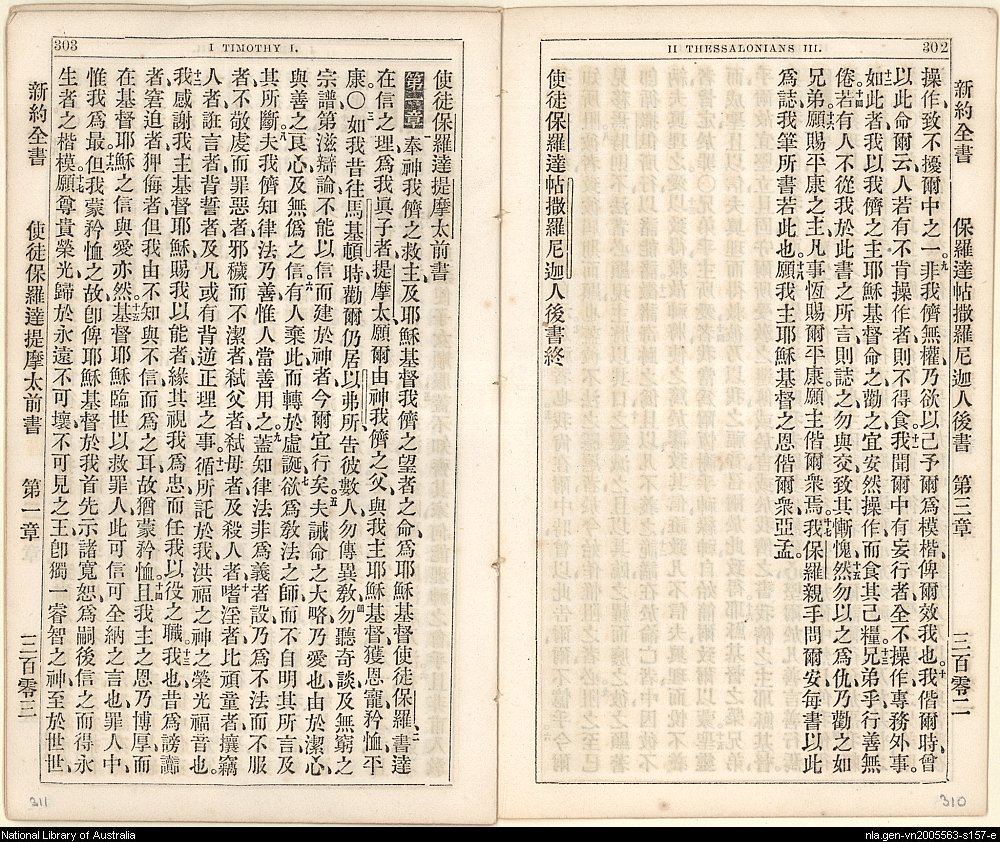 II THESSALONIANS III.
302
新約全書 保羅達帖撒羅尼迦人後書 第三章 三百零二
操作、致不擾爾中之一。九非我儕無權、乃欲以己予爾爲模楷、俾爾效我也。十我偕爾時、曾
以此命爾云、人若有不肯操作者、則不得食。十一我聞爾中有妄行者、全不操作、專務外事。
十二如此者、我以我儕之主耶穌基督命之、勸之、宜安然操作、而食其己糧。十三兄弟乎、行善無
倦。十四若有人不從我於此書之所言、則誌之、勿與交、致其慚愧。十五然勿以之爲仇、乃勸之如
兄弟。十六願賜平康之主、凡事恆賜爾平康。願主偕爾衆焉。十七我保羅親手問爾安、每書以此
爲誌、我筆所書若此也。十八願我主耶穌基督之恩偕爾衆、亞孟。
使徒保羅達帖撒羅尼迦人後書終
310
303
I TIMOTHY I.
使徒保羅達提摩太前書
第一章 奉神我儕之救主、及耶穌基督我儕之望者之命、爲耶穌基督使徒保羅、二書達
在信之理、爲我眞子者提摩太、願爾由神我儕之父、與我主耶穌基督、獲恩寵矜恤、平
康。〇三如我昔往馬基頓時、勸爾仍居以弗所、告彼數人、勿傳異敎、四勿聽奇談、及無窮之
宗譜、第滋辯論、不能以信而建於神者、今爾宜行矣。五夫誡命之大略、乃愛也、由於潔心、
與善之良心、及無僞之信。六有人棄此、而轉於虛誕、七欲爲敎法之師、而不自明其所言、及
其所斷。八夫我儕知律法乃善、惟人當善用之。九蓋知律法非爲義者設、乃爲不法而不服
者、不敬虔而罪惡者、邪穢而不潔者、弒父者、弒母者、及殺人者、十嗜淫者、比頑童者、攘竊
人者、誑言者、背誓者、及凡或有背逆正理之事。十一循所託於我、洪福之神之榮光福音也。
十二我感謝我主基督耶穌、賜我以能者、緣其視我爲忠、而任我以役之職。十三我也昔爲謗讟
者、窘迫者、狎侮者、但我由不知、與不信而爲之耳、故猶蒙矜恤。十四且我主之恩、乃博厚而
在基督耶穌之信與愛亦然。十五基督耶穌臨世以救罪人、此可信可全納之言也、罪人中、
惟我爲最。十六但我蒙矜恤之故、卽俾耶穌基督於我首先示諸寬恕、爲嗣後信之而得永
生者之楷模。十七願尊貴榮光、歸於永遠不可壞、不可見之王、卽獨一睿智之神、至於世世、
新約全書 使徒保羅達提摩太前書 第一章 三百零三
311
National Library of Australia
nla.gen-vn2005563-s157-e